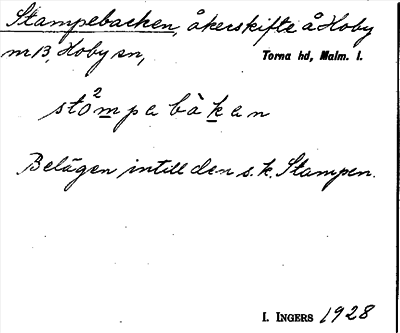 Stampebacken, åkerskifte å Hoby
m 13, Hoby sn,
Torna hd, Malm. l.
stò²mpabàkan
Belägen intill den s.k. Stampen.
I. INGERS 1928